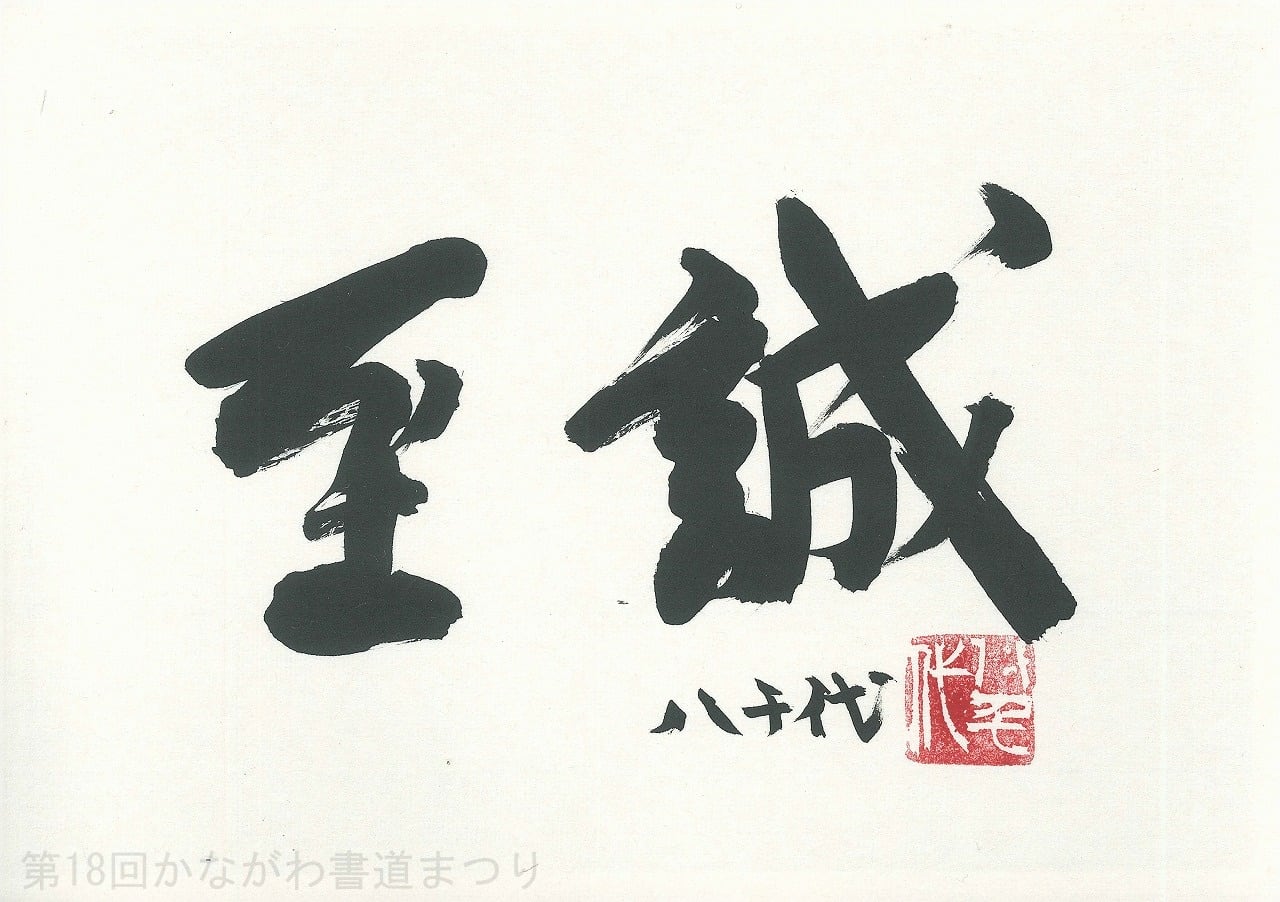 至誠
八千代
八千代
第18回かながわ書道まつり